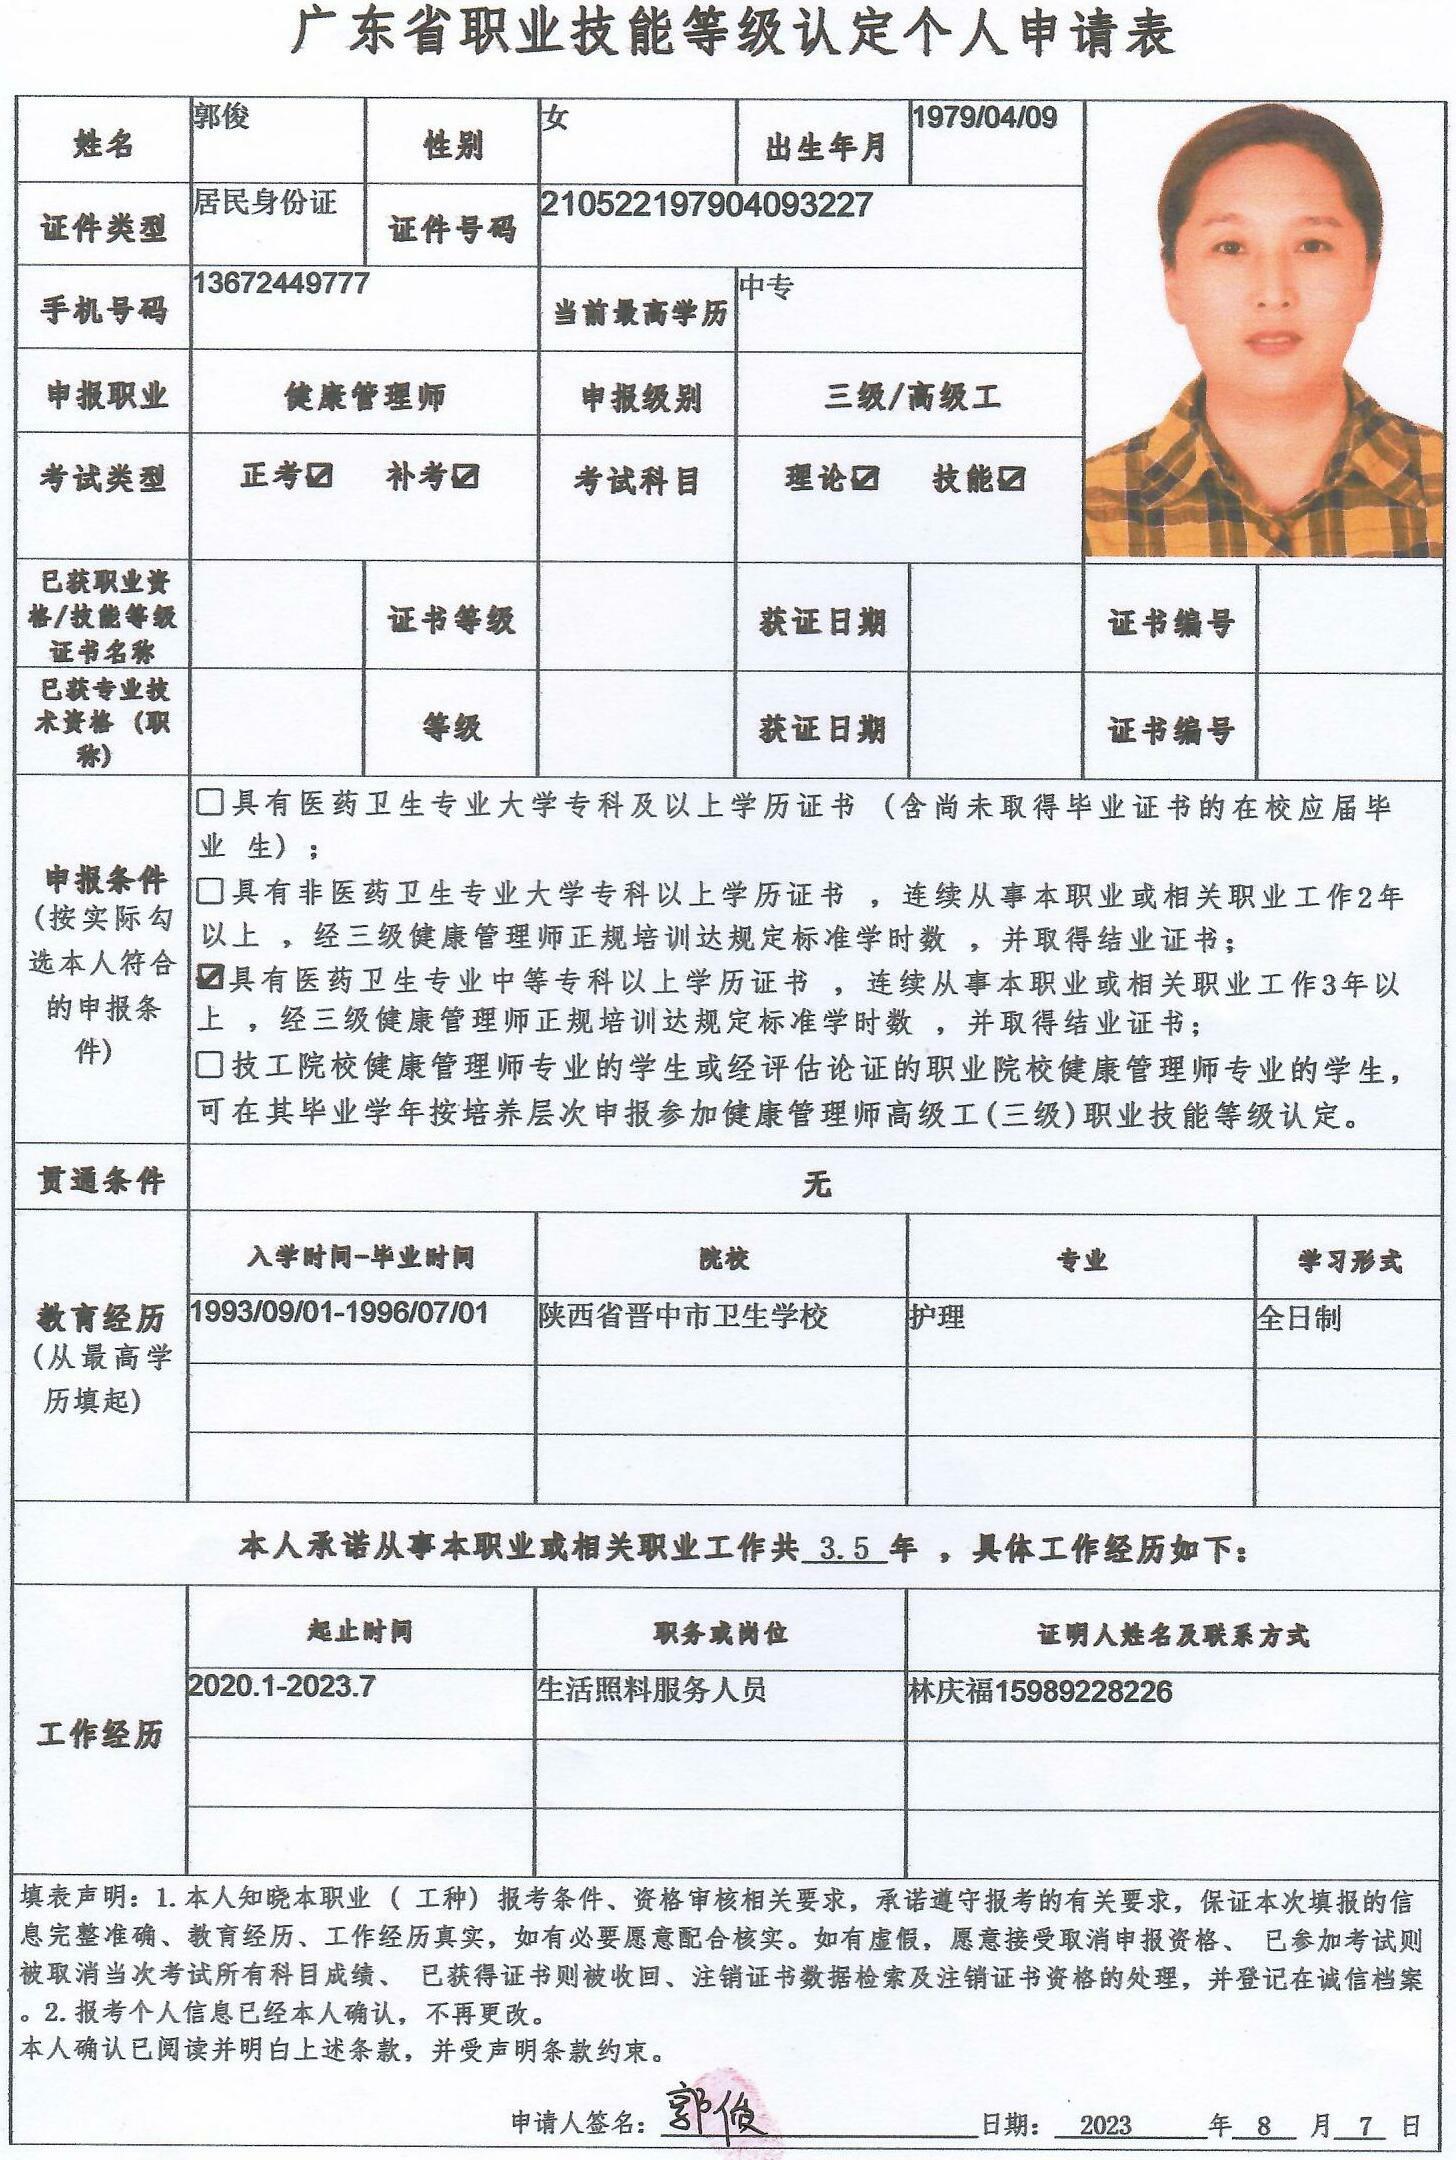 广东省职业技能等级认定个人申请表
姓名 郭俊 性别 女 出生年月 1979/04/09
证件类型 居民身份证 证件号码 210522197904093227
手机号码 13672449777 当前最高学历 中专
申报职业 健康管理师 申报级别 三级/高级工
考试类型 正考☑ 补考☑ 考试科目 理论☑ 技能☑
已获职业资
格/技能等级 证书等级 获证日期 证书编号
证书名称
已获专业技
术资格（职 等级 获证日期 证书编号
称）
申报条件
(按实际勾
选本人符合
的申报条
件)
□具有医药卫生专业大学专科及以上学历证书 （含尚未取得毕业证书的在校应届毕
业 生）；
□具有非医药卫生专业大学专科以上学历证书 ，连续从事本职业或相关职业工作2年
以上 ，经三级健康管理师正规培训达规定标准学时数 ，并取得结业证书；
☑具有医药卫生专业中等专科以上学历证书 ，连续从事本职业或相关职业工作3年以
上 ，经三级健康管理师正规培训达规定标准学时数 ，并取得结业证书；
□技工院校健康管理师专业的学生或经评估论证的职业院校健康管理师专业的学生，
可在其毕业学年按培养层次申报参加健康管理师高级工(三级)职业技能等级认定。
贯通条件 无
教育经历
(从最高学
历填起)
入学时间-毕业时间 院校 专业 学习形式
1993/09/01-1996/07/01 陕西省晋中市卫生学校 护理 全日制
本人承诺从事本职业或相关职业工作共 3.5 年 ，具体工作经历如下：
工作经历
起止时间 职务或岗位 证明人姓名及联系方式
2020.1-2023.7 生活照料服务人员 林庆福15989228226
填表声明：1.本人知晓本职业 （ 工种）报考条件、资格审核相关要求，承诺遵守报考的有关要求，保证本次填报的信
息完整准确、教育经历、工作经历真实，如有必要愿意配合核实。如有虚假，愿意接受取消申报资格、 已参加考试则
被取消当次考试所有科目成绩、 已获得证书则被收回、注销证书数据检索及注销证书资格的处理，并登记在诚信档案
。2.报考个人信息已经本人确认，不再更改。
本人确认已阅读并明白上述条款，并受声明条款约束。
申请人签名：郭俊 日期： 2023 年 8 月 7 日